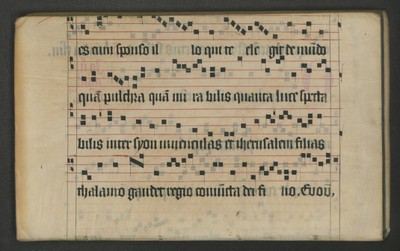 es cum sponso il lo qui te ele git de mūdo
quā pulchra quā mi ra bilis quanta luce specta
bilis inter syon iuvenculas et iherusalem filias
thalamo gaudet regio coniūcta dei fi lio, Evou,